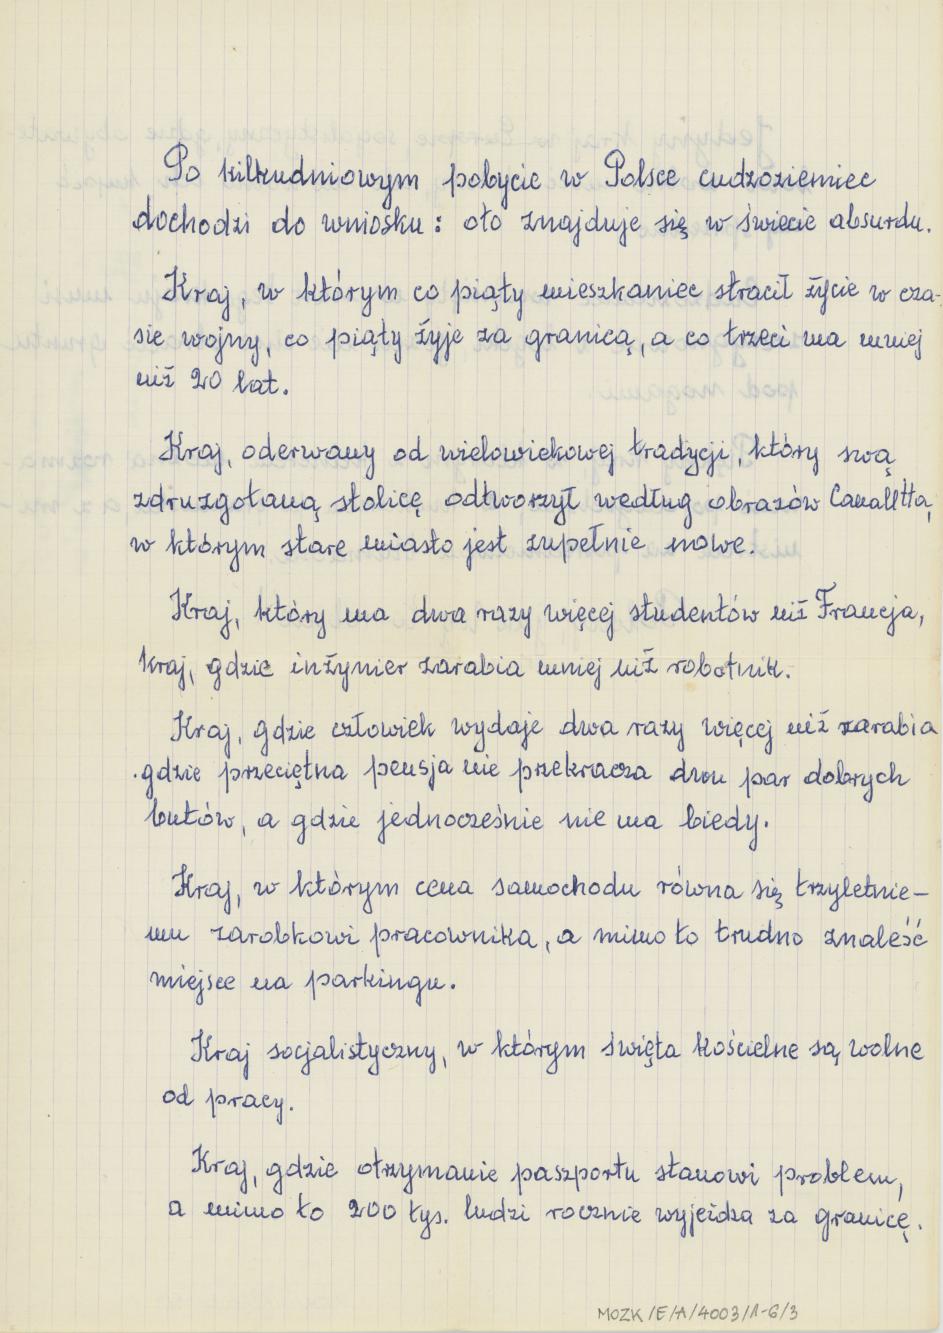 Po kilkudniowym pobycie w Polsce cudzoziemiec
dochodzi do wniosku: oto znajduje się w świecie absurdu.
Kraj, w którym co piąty mieszkaniec stracił życie w cza-
sie wojny, co piąty żyje za granicą, a co trzeci ma mniej
niż 20 lat.
Kraj, oderwany od wielowiekowej tradycji, który swą
zdruzgotaną stolicę odtworzył według obrazów Canaletta,
w którym stare miasto jest zupełnie nowe.
Kraj, który ma dwa razy więcej studentów niż Francja,
kraj, gdzie inżynier zarabia mniej niż robotnik.
Kraj, gdzie człowiek wydaje dwa razy więcej niż zarabia
gdzie przeciętna pensja nie przekracza dwu par dobrych
butów, a gdzie jednocześnie nie ma biedy.
Kraj, w którym cena samochodu równa się trzyletnie-
mu zarobkowi pracownika, a mimo to trudno znaleść
miejsce na parkingu.
Kraj socjalistyczny, w którym święta kościelne są wolne
od pracy.
Kraj, gdzie otrzymanie paszportu stanowi problem,
a mimo to 200 tys. ludzi rocznie wyjeżdza za granicę.
MOZK/E/A/4003/1-6/3